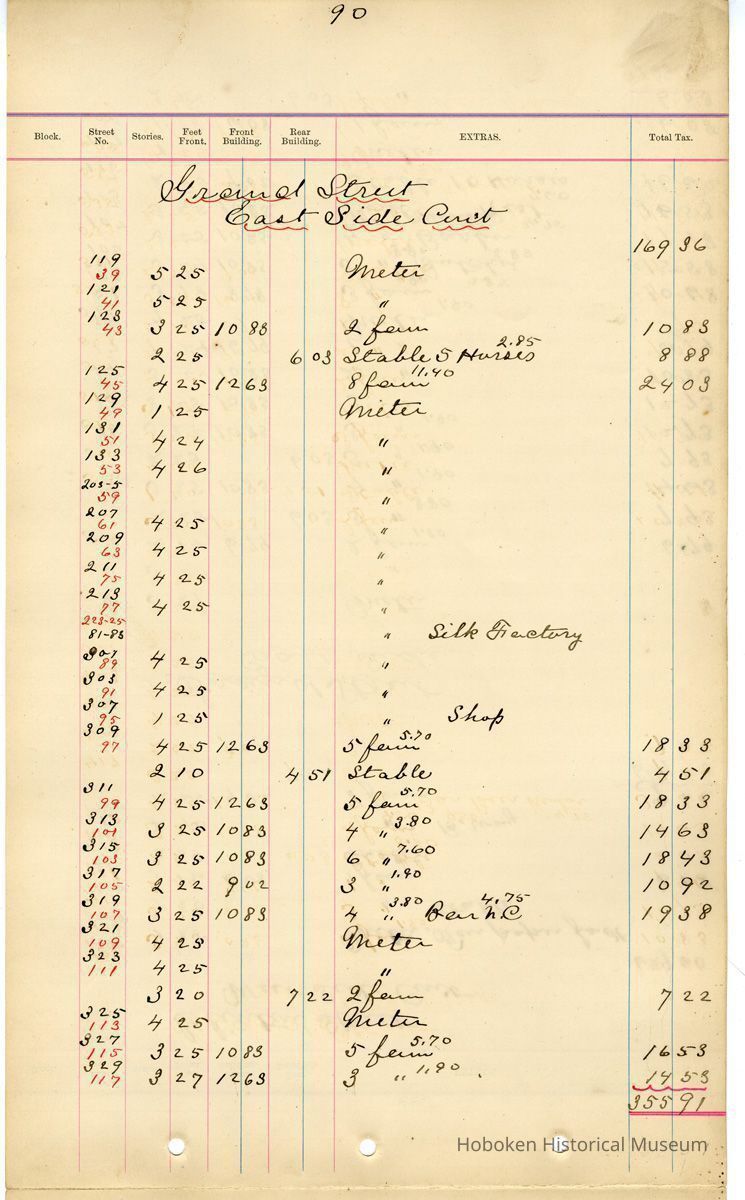 90
Block. Street No. Stories. Feet Front. Front Building. Rear Building. EXTRAS. Total Tax.
Grand Street
East Side Cont
169 36
119
39 5 25 Meter
121
41 5 25 "
123
43 3 25 10 83 2 fam 10 83
2 25 6 03 Stable 5 Horses 2.85 8 88
125
45 4 25 12 63 8 fam 11.40 24 03
129
49 1 25 Meter
131
51 4 24 "
133
53 4 26 "
203-5
59 "
207
61 4 25 "
209
63 4 25 "
211
75 4 25 "
213
77 4 25 "
223-25
81-83 " Silk Factory
301
89 4 25 "
303
91 4 25 "
307
95 1 25 " Shop
309
97 4 25 12 63 5 fam 5.70 18 33
2 10 4 51 Stable 4 51
311
99 4 25 12 63 5 fam 5.70 18 33
313
101 3 25 10 83 4 " 3.80 14 63
315
103 3 25 10 83 6 " 7.60 18 43
317
105 2 22 9 02 3 " 1.90 10 92
319
107 3 25 10 83 4 " 3.80 Bar W.C 4.75 19 38
321
109 4 25 Meter
323
111 4 25 "
3 20 7 22 2 fam 7 22
325
113 4 25 Meter
327
115 3 25 10 83 5 fam 5.70 16 53
329
117 3 27 12 63 3 " 1.90 14 53
355 91
Hoboken Historical Museum